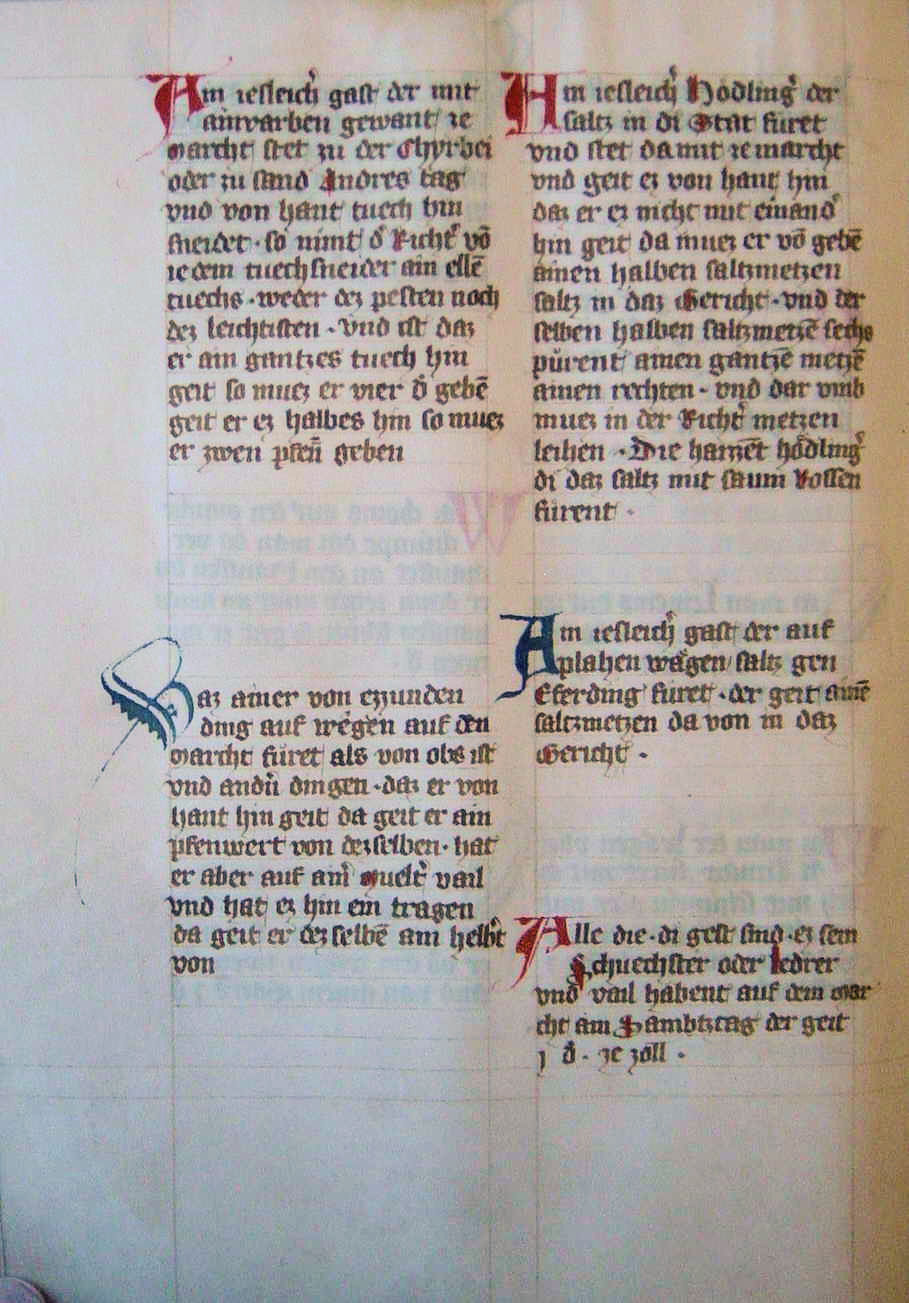 Am iesleich gast der mit
ainvarben gewant ze
marcht stet zu der Chyrbei
oder zu sand Andres tag
vnd von hant tuech hin
sneidet · so nimt d' Richt' vō
iedem tuechsneider ain ellē
tuechs · weder dez pesten noch
dez leichtisten · vnd ist daz
er ain gantzes tuech hin
geit so muez er vier d gebē
geit er ez halbes hin so muez
er zwen pfen̄ geben
Waz ainer von ezzunden
ding auf wegen auf den
marcht fůret als von obs ist
vnd andn̄ dingen · daz er von
hant hin geit da geit er ain
pfenwert von dezselben · hat
er aber auf aim vail
vnd hat ez hin ein tragen
da geit er dez selbē ain helbt
von
Am iesleich Hödling' der
saltz in di Stat fůret
vnd stet da mit ze marcht
vnd geit ez von hant hin
daz er ez nicht mit einand'
hin geit da muez er vō gebē
ainen halben saltzmetzen
saltz in daz Gericht · vnd der
selben halben saltzmetzē sechs
půrent ainen gantzē metzē
ainen rechten · vnd dar vmb
muez in der Richt' metzen
leihen · Die haizzēt hödling'
di daz saltz mit saum Rossen
fůrent ·
Am iesleich gast der auf
plahen wägen saltz gen
Eferding fůret · der geit ainē
saltzmetzen da von in daz
Gericht ·
Alle die · di gest sind · ez sein
Schuechster oder ledrer
vnd vail habent auf dem mar
cht am Sambtztag der geit
j d · ze zoll ·